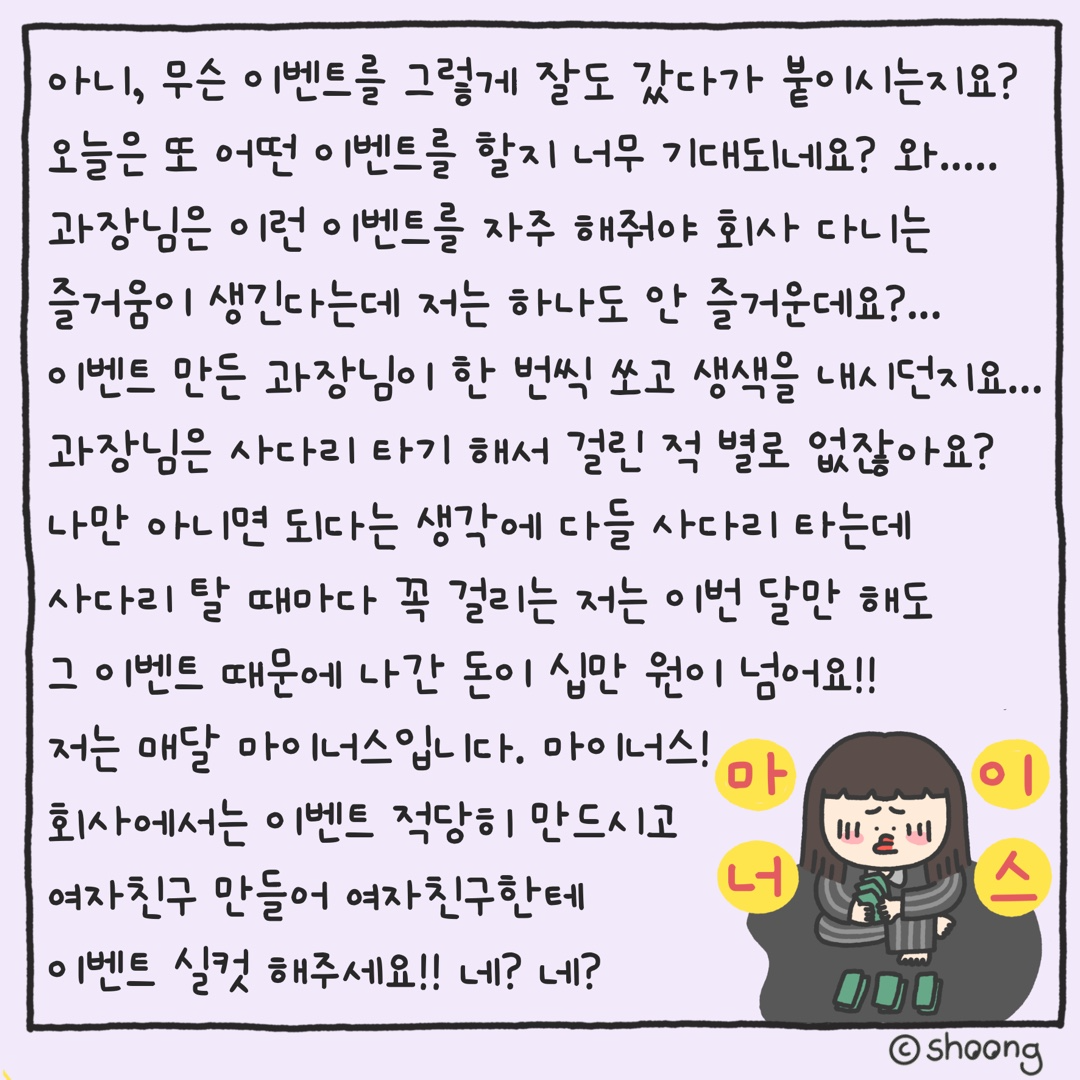 아니, 무슨 이벤트를 그렇게 잘도 갔다가 붙이시는지요?
오늘은 또 어떤 이벤트를 할지 너무 기대되네요? 와.....
과장님은 이런 이벤트를 자주 해줘야 회사 다니는
즐거움이 생긴다는데 저는 하나도 안 즐거운데요?...
이벤트 만든 과장님이 한 번씩 쏘고 생색을 내시던지요...
과장님은 사다리 타기 해서 걸린 적 별로 없잖아요?
나만 아니면 되다는 생각에 다들 사다리 타는데
사다리 탈 때마다 꼭 걸리는 저는 이번 달만 해도
그 이벤트 때문에 나간 돈이 십만 원이 넘어요!!
저는 매달 마이너스입니다. 마이너스!
회사에서는 이벤트 적당히 만드시고
여자친구 만들어 여자친구한테
이벤트 실컷 해주세요!! 네? 네?
마 이
너 스
©shoong